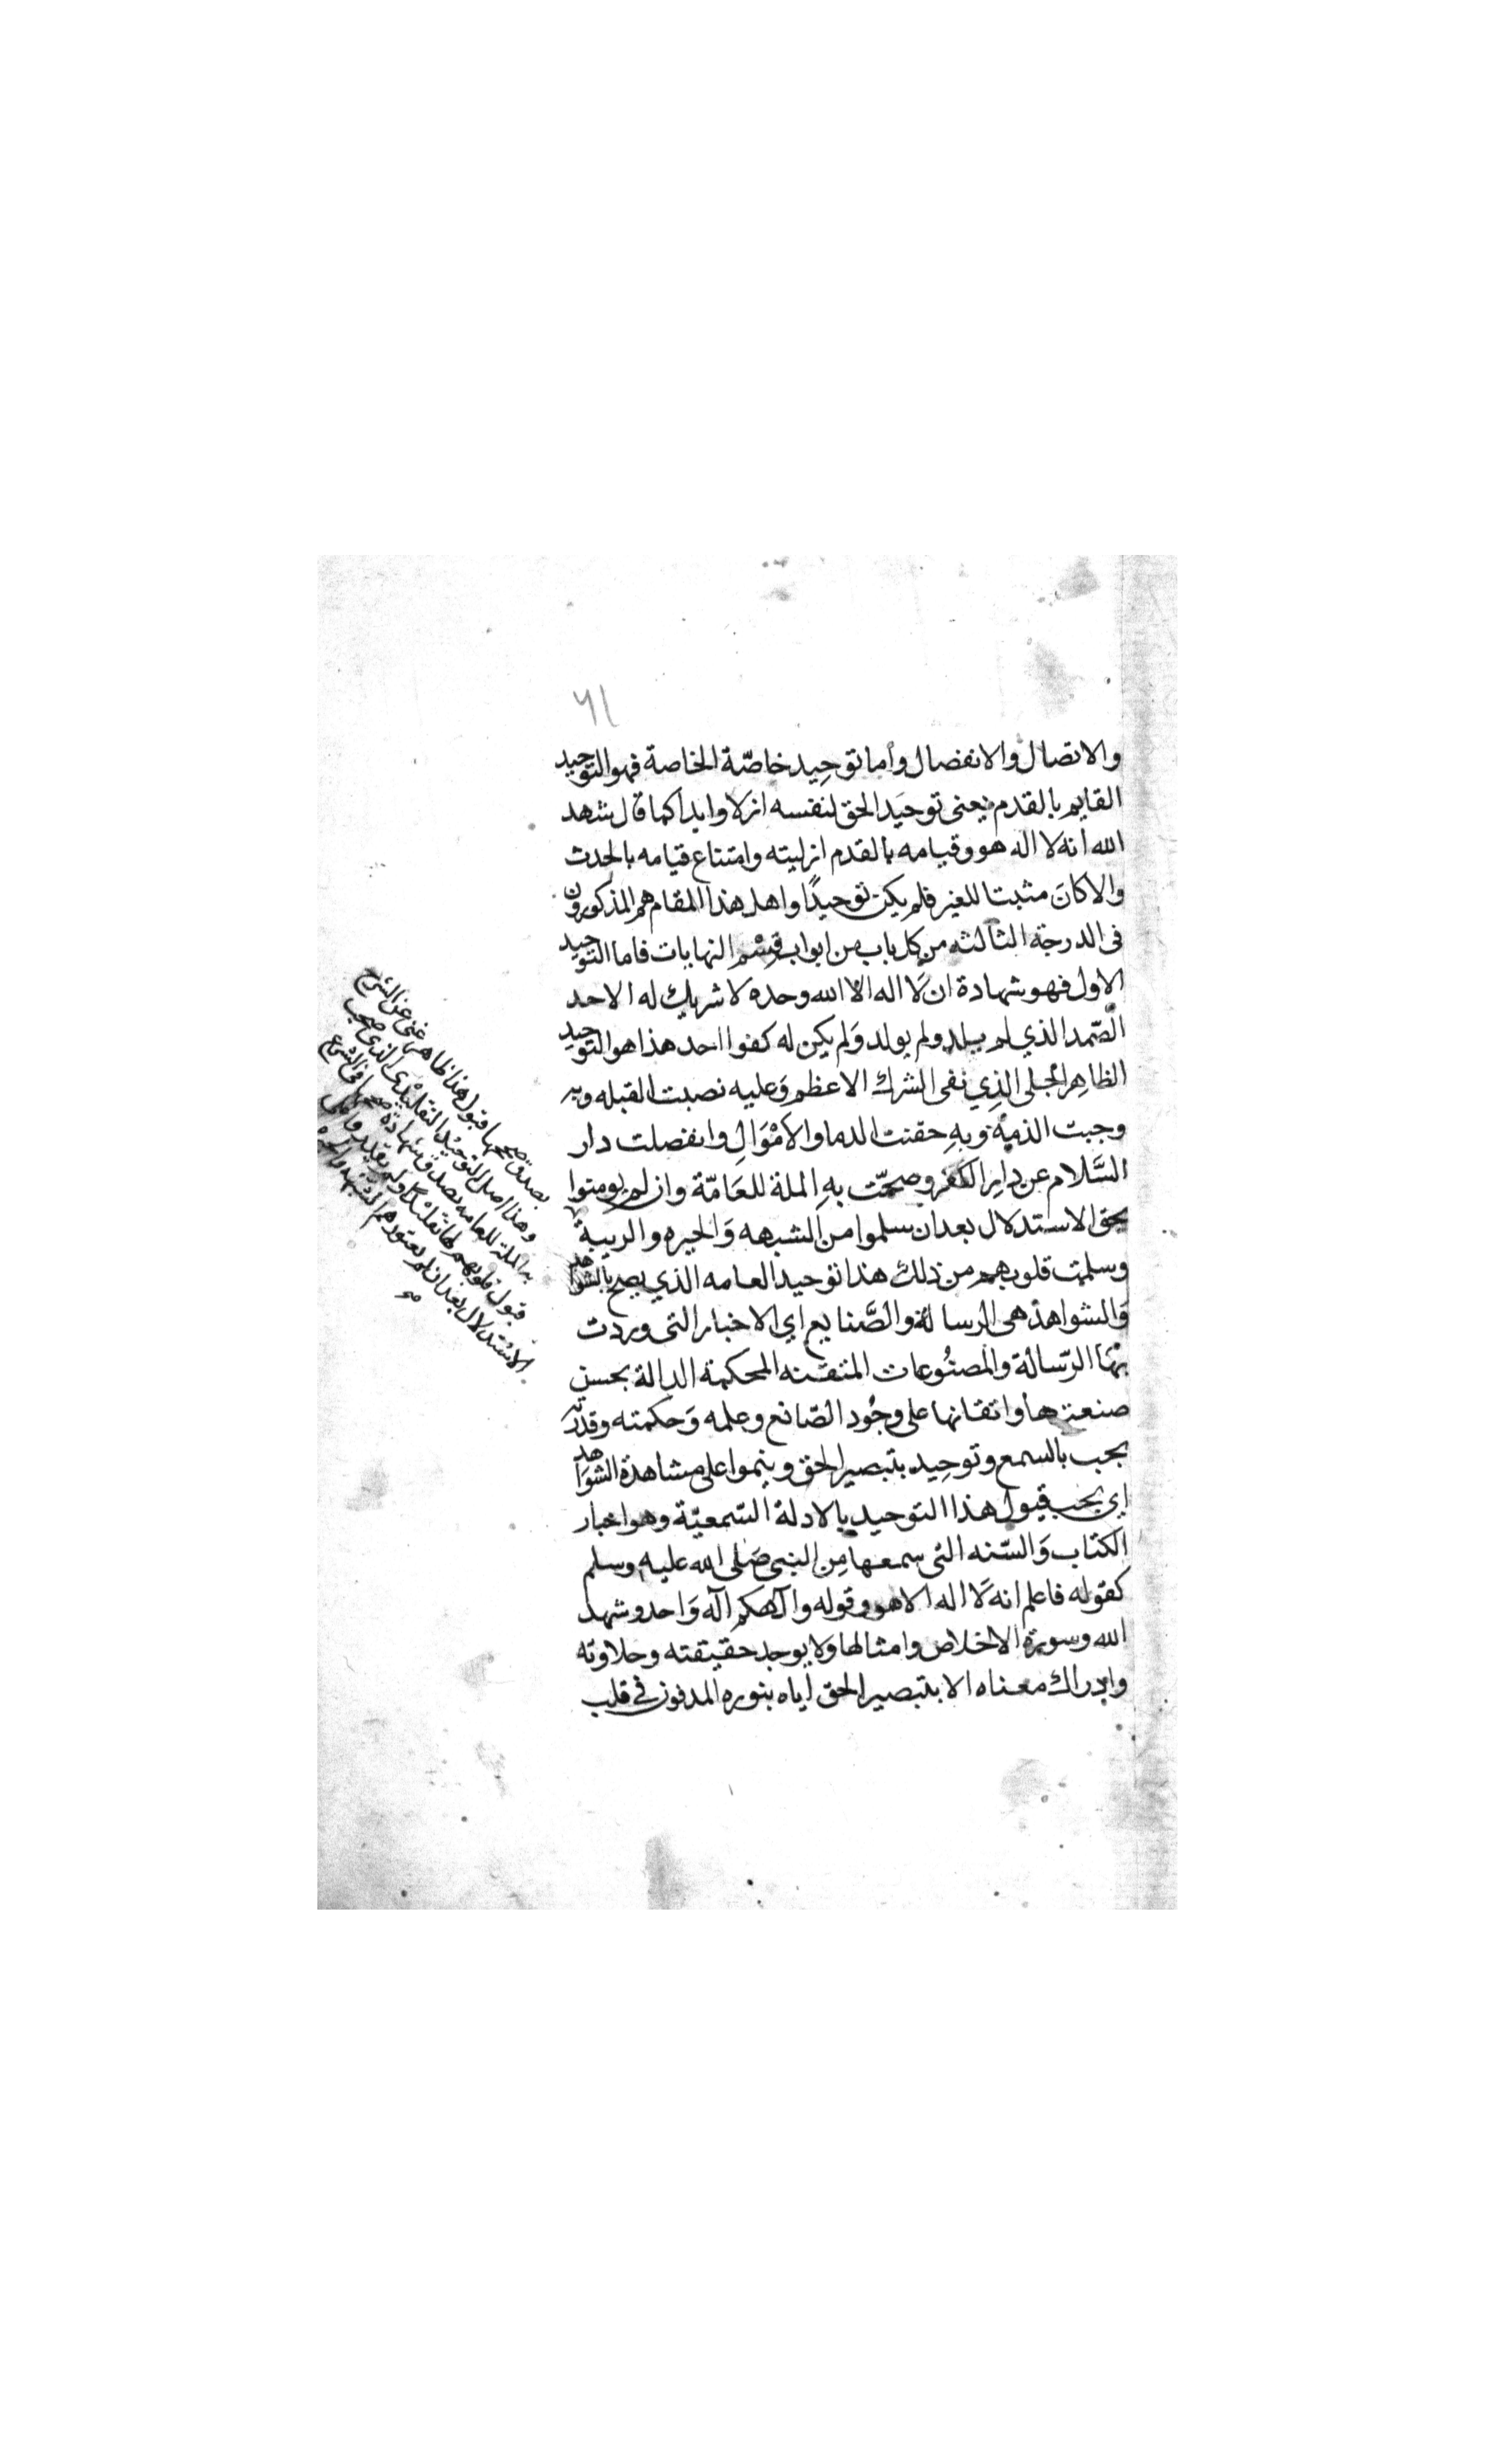 ٦١
والاتصال والانفصال وأما توحيد خاصّة الخاصة فهو التوحيد
القايم بالقدم يعنى توحيد الحق لنفسه ازلا وابدا كما قال شهد
الله انه لا اله هو وقيامه بالقدم ازليته وامتناع قيامه بالحدث
والا كان مثبتا للغير فلم يكن توحيدًا واهل هذا المقام هم المذكورون
فى الدرجة الثالثه من كل باب من ابواب قسم النهايات فاما التوحيد
الاول فهو شهادة ان لا اله الا الله وحده لا شريك له الاحد
الصّمد الذي لم يلد ولم يولد وَلم يكن له كفوا احد هذا هو التوحيد
الظاهر الجلى الذِي نفى الشرك الاعظم وَعليه نصبت القبله وبه
وجبت الذمة وبهِ حقنت الدما والامْوَالِ وانفصلت دار
السَّلام عن دارِ الكفر وصحّت بهِ الملة للعَامّة وان لم يومنوا
بحق الاستدلال بعد ان سلموا من الشبهه وَالحيره والريبة
وسلمت قلوبهم من ذلك هذا توحيد العامه الذي يصح بالشواهد
وَالشواهد هى الرسالة والصَّنايع اي الاخبار التى وردت
بها الرّسالة والمصنُوعات المتقنه المحكمة الدالة بحسن
صنعتها واتقانها على وجُود الصّانع وعلمه وَحكمته وقدرته
يجب بالسمع وتوحِيد بتبصير الحق وينموا على مشاهدة الشوَاهد
اي يجب قبول هذا التوحيد بالادلة السّمعيّة وهو اخبار
الكتاب وَالسّنه التى سمعها مِن النبى صَلى الله عليه وسلم
كقوله فاعلم انه لَا اله الا هو وقوله وآلهكم اله وَاحد وشهد
الله وسورة الاخلاص وامثالها ولا يوجد حقيقته وحلاوته
وادراك معناه الا بتبصير الحق اياه بنوره المدفون فى قلب
بصدق صححها قبول هذا ظاهر غنى عن الشرح
وهذا اصل التوحيد التقليدى الذى صحت
به الملة للعامه بصدق شهادة صححها فى الشرع
قبول قلوبهم لها تقليدًا ولم يقدروا على
الاستدلال بعد ان لم يعتورهم الشبهه والحيرة